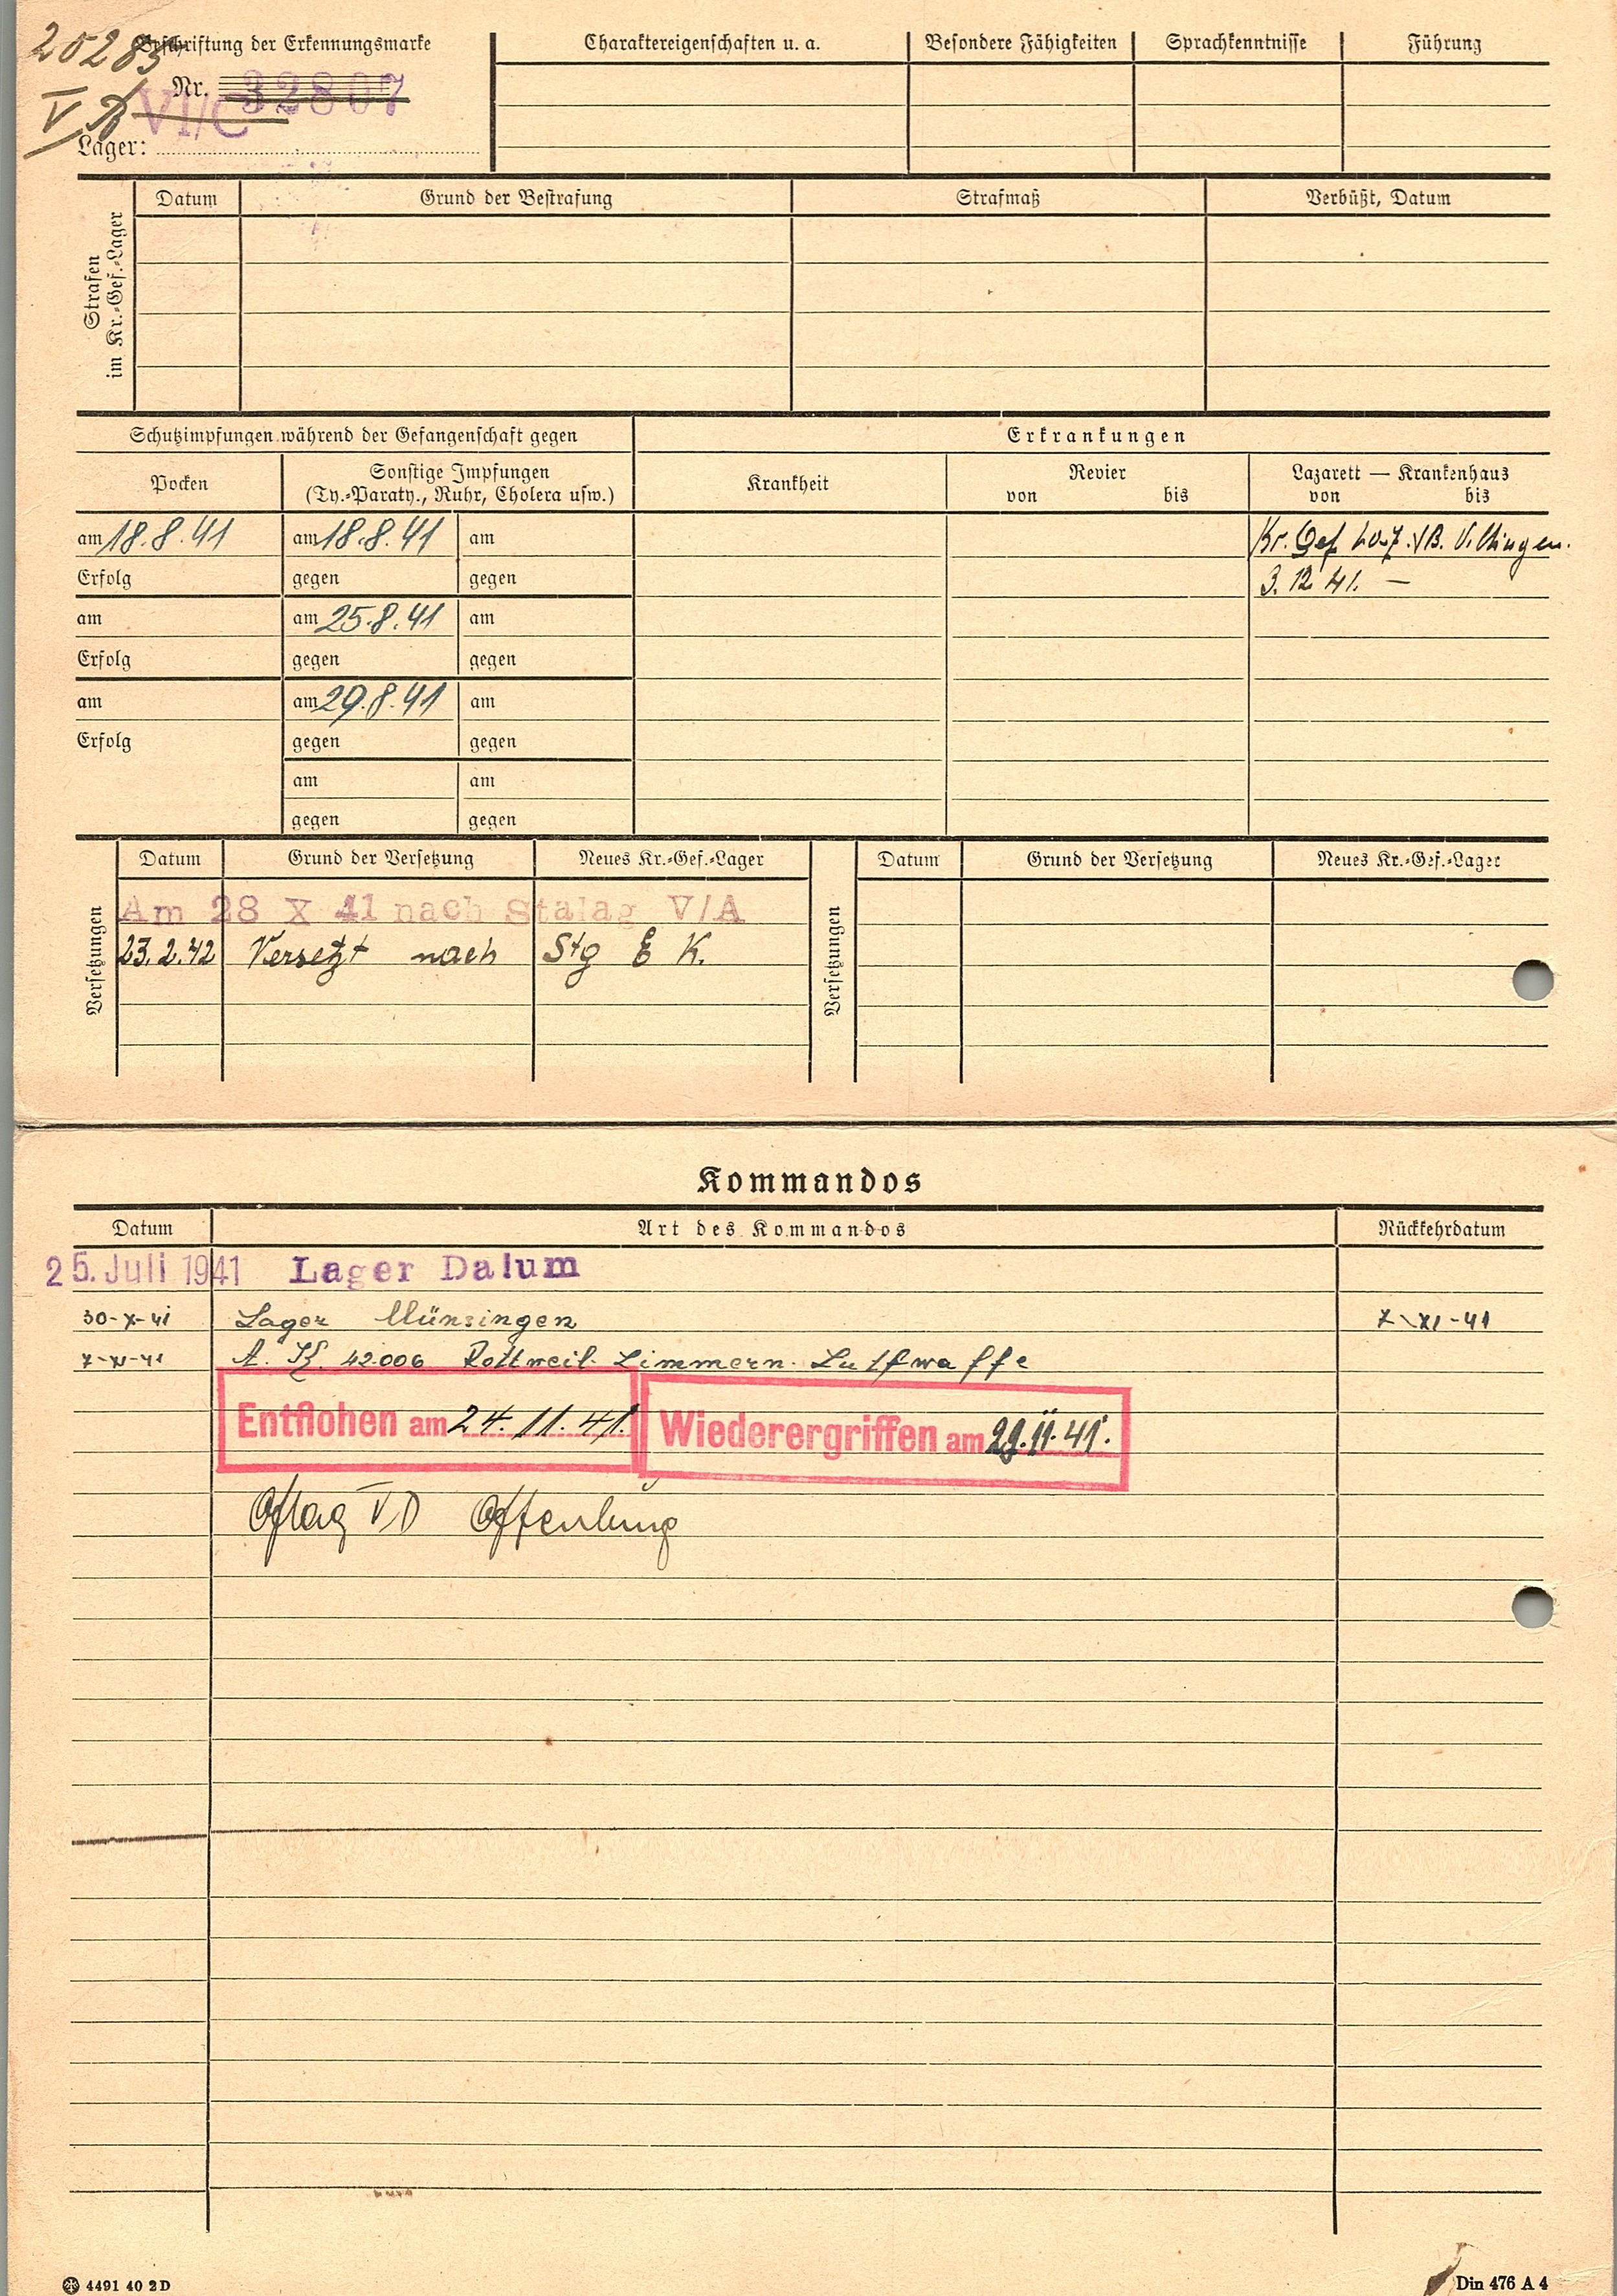 20285
Beschriftung der Erkennungsmarke
Nr. 32807
V VI/C
Lager:
Charaktereigenschaften u. a. Besondere Fähigkeiten Sprachkenntnisse Führung
Strafen
im Kr.-Gef.-Lager
Datum Grund der Bestrafung Strafmaß Verbüßt, Datum
Schutzimpfungen während der Gefangenschaft gegen Erkrankungen
Pocken Sonstige Impfungen
(Ty.-Paraty., Ruhr, Cholera usw.) Krankheit Revier
von bis Lazarett — Krankenhaus
von bis
am 18.8.41 am 18.8.41 am Kr. Gef. V.B. Villingen.
Erfolg gegen gegen 3. 12 41. —
am am 25.8.41 am
Erfolg gegen gegen
am am 29.8.41 am
Erfolg gegen gegen
am am
gegen gegen
Versetzungen Datum Grund der Versetzung Neues Kr.-Gef.-Lager Versetzungen Datum Grund der Versetzung Neues Kr.-Gef.-Lager
Am 28 X 41 nach Stalag V/A
23.2.42 Versetzt nach Stg E K.
Kommandos
Datum Art des Kommandos Rückkehrdatum
25. Juli 1941 Lager Dalum
30-X-41 Lager Münsingen 7-XI-41
7-XI-41 A. K. 42006 Rottweil-Zimmern-Luftwaffe
Entflohen am 24.11.41. Wiederergriffen am 29.11.41.
Oflag V D Offenburg
4491 40 2D Din 476 A 4